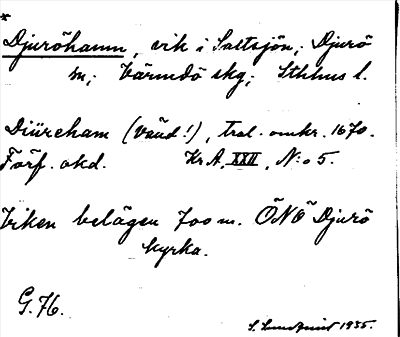 *
Djuröhamn, vik i Saltsjön; Djurö
sn; Värmdö skg; Sthlms l.
Diüreham (våud!), trol. omkr. 1670.
Förf. okd. Kr. A, XXII, N:o 5.
Viken belägen 700 m. ÖNÖ Djurö
kyrka.
G. 76.
S. Lundqvist 1935.